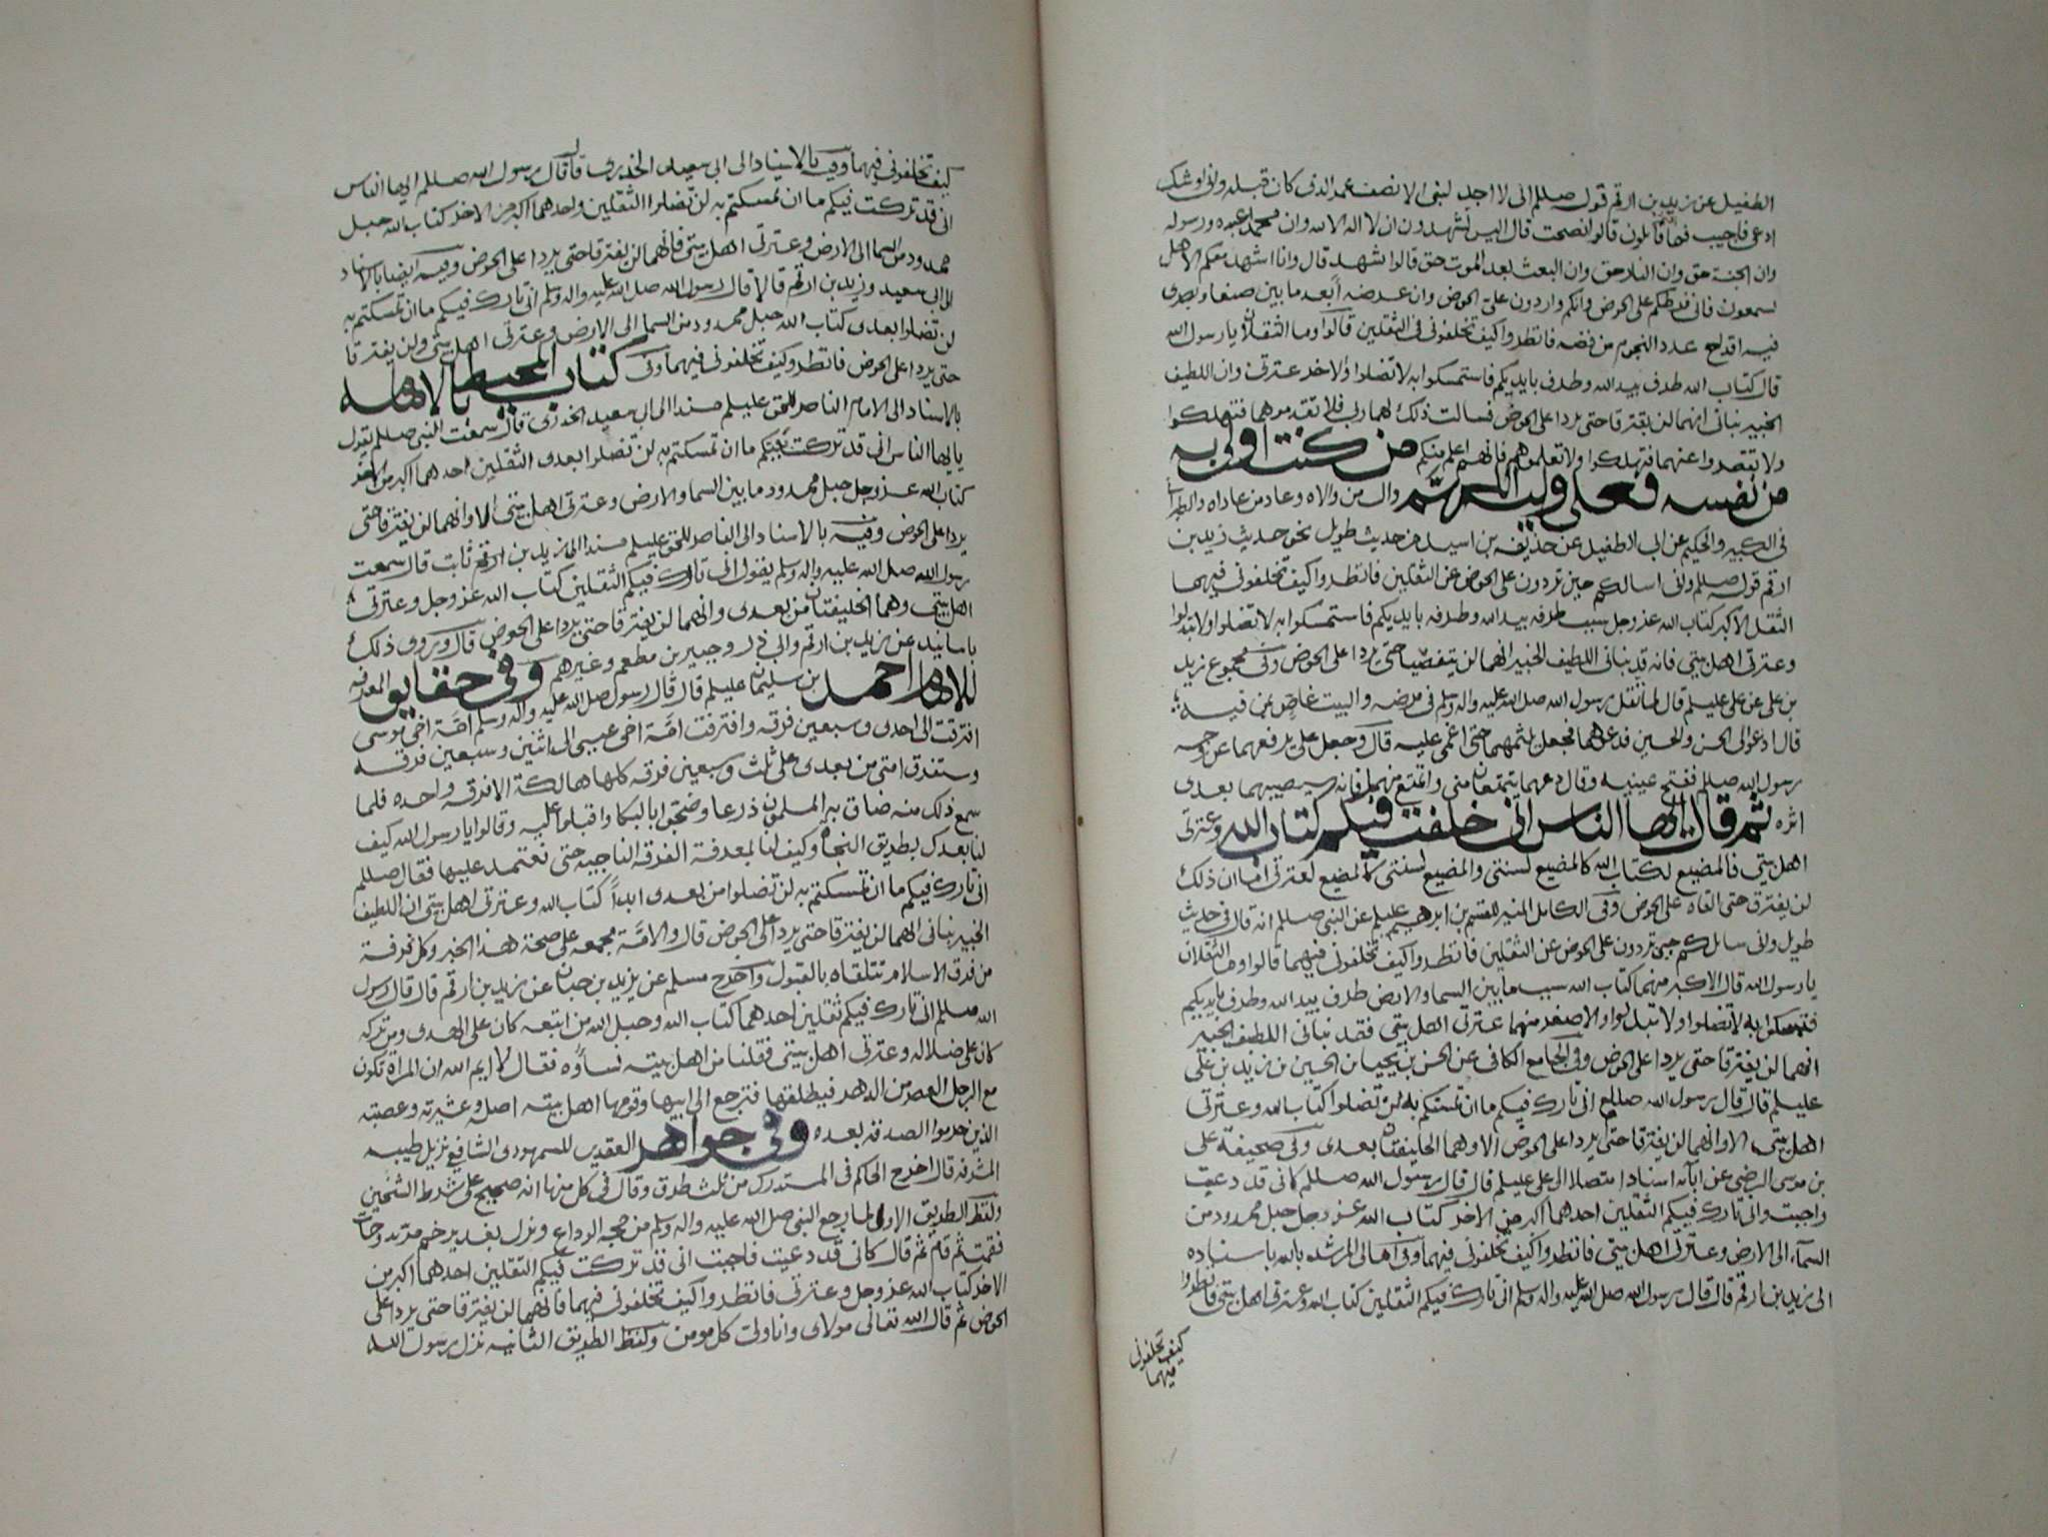 الطفيل عن زيد بن ارقم قول صللم انى لا اجد لنبى الا نصف عمر الذى كان قبله وانى اوشك
ادعى فاجيب فما قايلون قالوا نصحت قال اليس تشهدون ان لا اله الا الله وان محمدا عبده ورسوله
وان الجنة حق وان النار حق وان البعث بعد الموت حق قالوا نشهد قال وانا اشهد معكم الا هل
تسمعون فانى فرطكم على الحوض وانكم واردون على الحوض وان عرضه ابعد ما بين صنعا وبصرى
فيه اقداح عدد النجوم من فضه فانظروا كيف تخلفونى فى الثقلين قالوا وما الثقلان يا رسول الله
قال كتاب الله طرف بيد الله وطرف بايديكم فاستمسكوا به لا تضلوا والاخر عترتى وان اللطيف
الخبير نبانى انهما لن يفترقا حتى يردا على الحوض فسالت ذلك لهما ربى فلا تقدموهما فتهلكوا
ولا تقصروا عنهما فتهلكوا ولا تعلموهم فانهم اعلم منكم من كنت اولى به
من نفسه فعلى وليه اللهم وال من والاه وعاد من عاداه
فى الكبير والحكيم عن ابى الطفيل عن حذيفه بن اسيد من حديث طويل نحو حديث زيد بن
ارقم قوله صللم وانى اسالكم حين تردون على الحوض عن الثقلين فانظروا كيف تخلفونى فيهما
الثقل الاكبر كتاب الله عز وجل سبب طرفه بيد الله وطرفه بايديكم فاستمسكوا به لا تضلوا ولا تبدلوا
وعترتى اهل بيتى فانه قد نبانى اللطيف الخبير انهما لن ينقضيا حتى يردا على الحوض وفى مجموع زيد
بن على عن على عليلم قال لما ثقل رسول الله صلى الله عليه واله وسلم فى مرضه والبيت غاص بمن فيه
قال ادعوا لى الحسن والحسين فدعوهما فجعل يلثمهما حتى اغمى عليه قال وجعل على يرفعهما عن وجه
رسول الله صللم ففتح عينيه وقال دعهما يتمتعان منى واتمتع منهما فانه سيصيبهما بعدى
اثره ثم قال ايها الناس انى خلفت فيكم كتاب الله وعترتى
اهل بيتى فالمضيع لكتاب الله كالمضيع لسنتى والمضيع لسنتى كالمضيع لعترتى اما ان ذلك
لن يفترق حتى القاه على الحوض وفى الكامل المنير للقسم بن ابرهيم عليلم عن النبى صللم انه قال فى حديث
طويل وانى سايلكم حين تردون على الحوض عن الثقلين فانظروا كيف تخلفونى فيهما قالوا وما الثقلان
يا رسول الله قال الاكبر منهما كتاب الله سبب ما بين السما والارض طرف بيد الله وطرف بايديكم
فتمسكوا به لا تضلوا ولا تبدلوا والاصغر منهما عترتى اهل بيتى فقد نبانى اللطيف الخبير
انهما لن يفترقا حتى يردا على الحوض وفى الجامع الكافى عن الحسن بن يحيى بن الحسين بن زيد بن على
عليلم قال قال رسول الله صللم انى تارك فيكم ما ان تمسكتم به لن تضلوا كتاب الله وعترتى
اهل بيتى الا وانهما لن يفترقا حتى يردا على الحوض الا وهما الخليفتان بعدى وفى صحيفة على
بن موسى الرضى عن ابآئه اسنادا متصلا الى على عليلم قال قال رسول الله صللم كانى قد دعيت
واجبت وانى تارك فيكم الثقلين احدهما اكبر من الاخر كتاب الله عز وجل حبل ممدود من
السمآء الى الارض وعترتى اهل بيتى فانظروا كيف تخلفونى فيهما وفى امالى المرشد بالله باسناده
الى زيد بن ارقم قال قال رسول الله صلى الله عليه واله وسلم انى تارك فيكم الثقلين كتاب الله وعترتى اهل بيتى فانظروا
كيف تخلفونى
فيهما
كيف تخلفونى فيهما وفيه بالاسناد الى ابى سعيد الخدرى قال قال رسول الله صللم ايها الناس
انى قد تركت فيكم ما ان تمسكتم به لن تضلوا الثقلين واحدهما اكبر من الاخر كتاب الله حبل
ممدود من السما الى الارض وعترتى اهل بيتى فانهما لن يفترقا حتى يردا على الحوض وفيه ايضا بالاسناد
الى ابى سعيد وزيد بن ارقم قالا قال رسول الله صلى الله عليه واله وسلم انى تارك فيكم ما ان تمسكتم به
لن تضلوا بعدى كتاب الله حبل ممدود من السما الى الارض وعترتى اهل بيتى ولن يفترقا
حتى يردا على الحوض فانظروا كيف تخلفونى فيهما وفى كتاب المحيط بالامامه
بالاسناد الى الامام الناصر للحق عليلم مسندا الى ابى سعيد الخدرى قال سمعت النبى صللم يقول
يا ايها الناس انى قد تركت فيكم ما ان تمسكتم به لن تضلوا بعدى الثقلين احدهما اكبر من الاخر
كتاب الله عز وجل حبل ممدود ما بين السما والارض وعترتى اهل بيتى الا وانهما لن يفترقا حتى
يردا على الحوض وفيه بالاسناد الى الناصر للحق عليلم مسندا الى زيد بن ارقم ثابت قال سمعت
رسول الله صلى الله عليه واله وسلم يقول انى تارك فيكم الثقلين كتاب الله عز وجل وعترتى
اهل بيتى وهما الخليفتان من بعدى وانهما لن يفترقا حتى يردا على الحوض قال وروى ذلك
باسانيد عن زيد بن ارقم وابى ذر وجبير بن مطعم وغيرهم وفى حقايق المعرفه
للامام احمد بن سليمان عليلم قال قال رسول الله صلى الله عليه واله وسلم امة اخى موسى
افترقت الى احدى وسبعين فرقه وافترقت امة اخى عيسى الى اثنين وسبعين فرقه
وستفرق امتى من بعدى على ثلث وسبعين فرقه كلها هالكة الا فرقه واحده فلما
سمع ذلك منه ضاق به المسلمون ذرعا وضجوا بالبكا واقبلوا عليه وقالوا يا رسول الله كيف
لنا بعدك بطريق النجاة وكيف لنا بمعرفة الفرقه الناجيه حتى نعتمد عليها فقال صللم
انى تارك فيكم ما ان تمسكتم به لن تضلوا من بعدى ابداً كتاب الله وعترتى اهل بيتى ان اللطيف
الخبير نبانى انهما لن يفترقا حتى يردا على الحوض قال والامة مجمعه على صحة هذا الخبر وكل فرقة
من فرق الاسلام تتلقاه بالقبول واخرج مسلم عن يزيد بن حبان عن زيد بن ارقم قال قال رسول
الله صللم انى تارك فيكم ثقلين احدهما كتاب الله وحبل الله من اتبعه كان على الهدى ومن تركه
كان على ضلاله وعترتى اهل بيتى فقلنا من اهل بيته نساؤه فقال لا ايم الله ان المراة تكون
مع الرجل العصر من الدهر فيطلقها فترجع الى ابيها وقومها اهل بيته اصله وعشيرته وعصبته
الذين حرموا الصدقه بعده وفى جواهر العقدين للسمهودى الشافعى نزيل طيبه
المشرفه قال اخرج الحاكم فى المستدرك من ثلث طرق وقال فى كل منها انه صحيح على شرط الشيخين
ولفظ الطريق الاولى لما رجع النبى صلى الله عليه واله وسلم من حجه الوداع ونزل بغدير خم
فقمت ثم قام ثم قال كانى قد دعيت فاجبت انى قد تركت فيكم الثقلين احدهما اكبر من
الاخر كتاب الله عز وجل وعترتى فانظروا كيف تخلفونى فيهما فانهما لن يفترقا حتى يردا على
الحوض ثم قال الله تعالى مولاى وانا ولى كل مومن ولفظ الطريق الثانيه نزل رسول الله